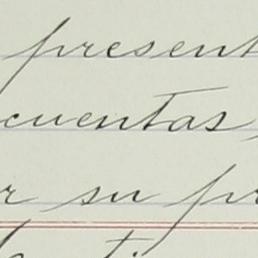 present
cuentas,
r su pr